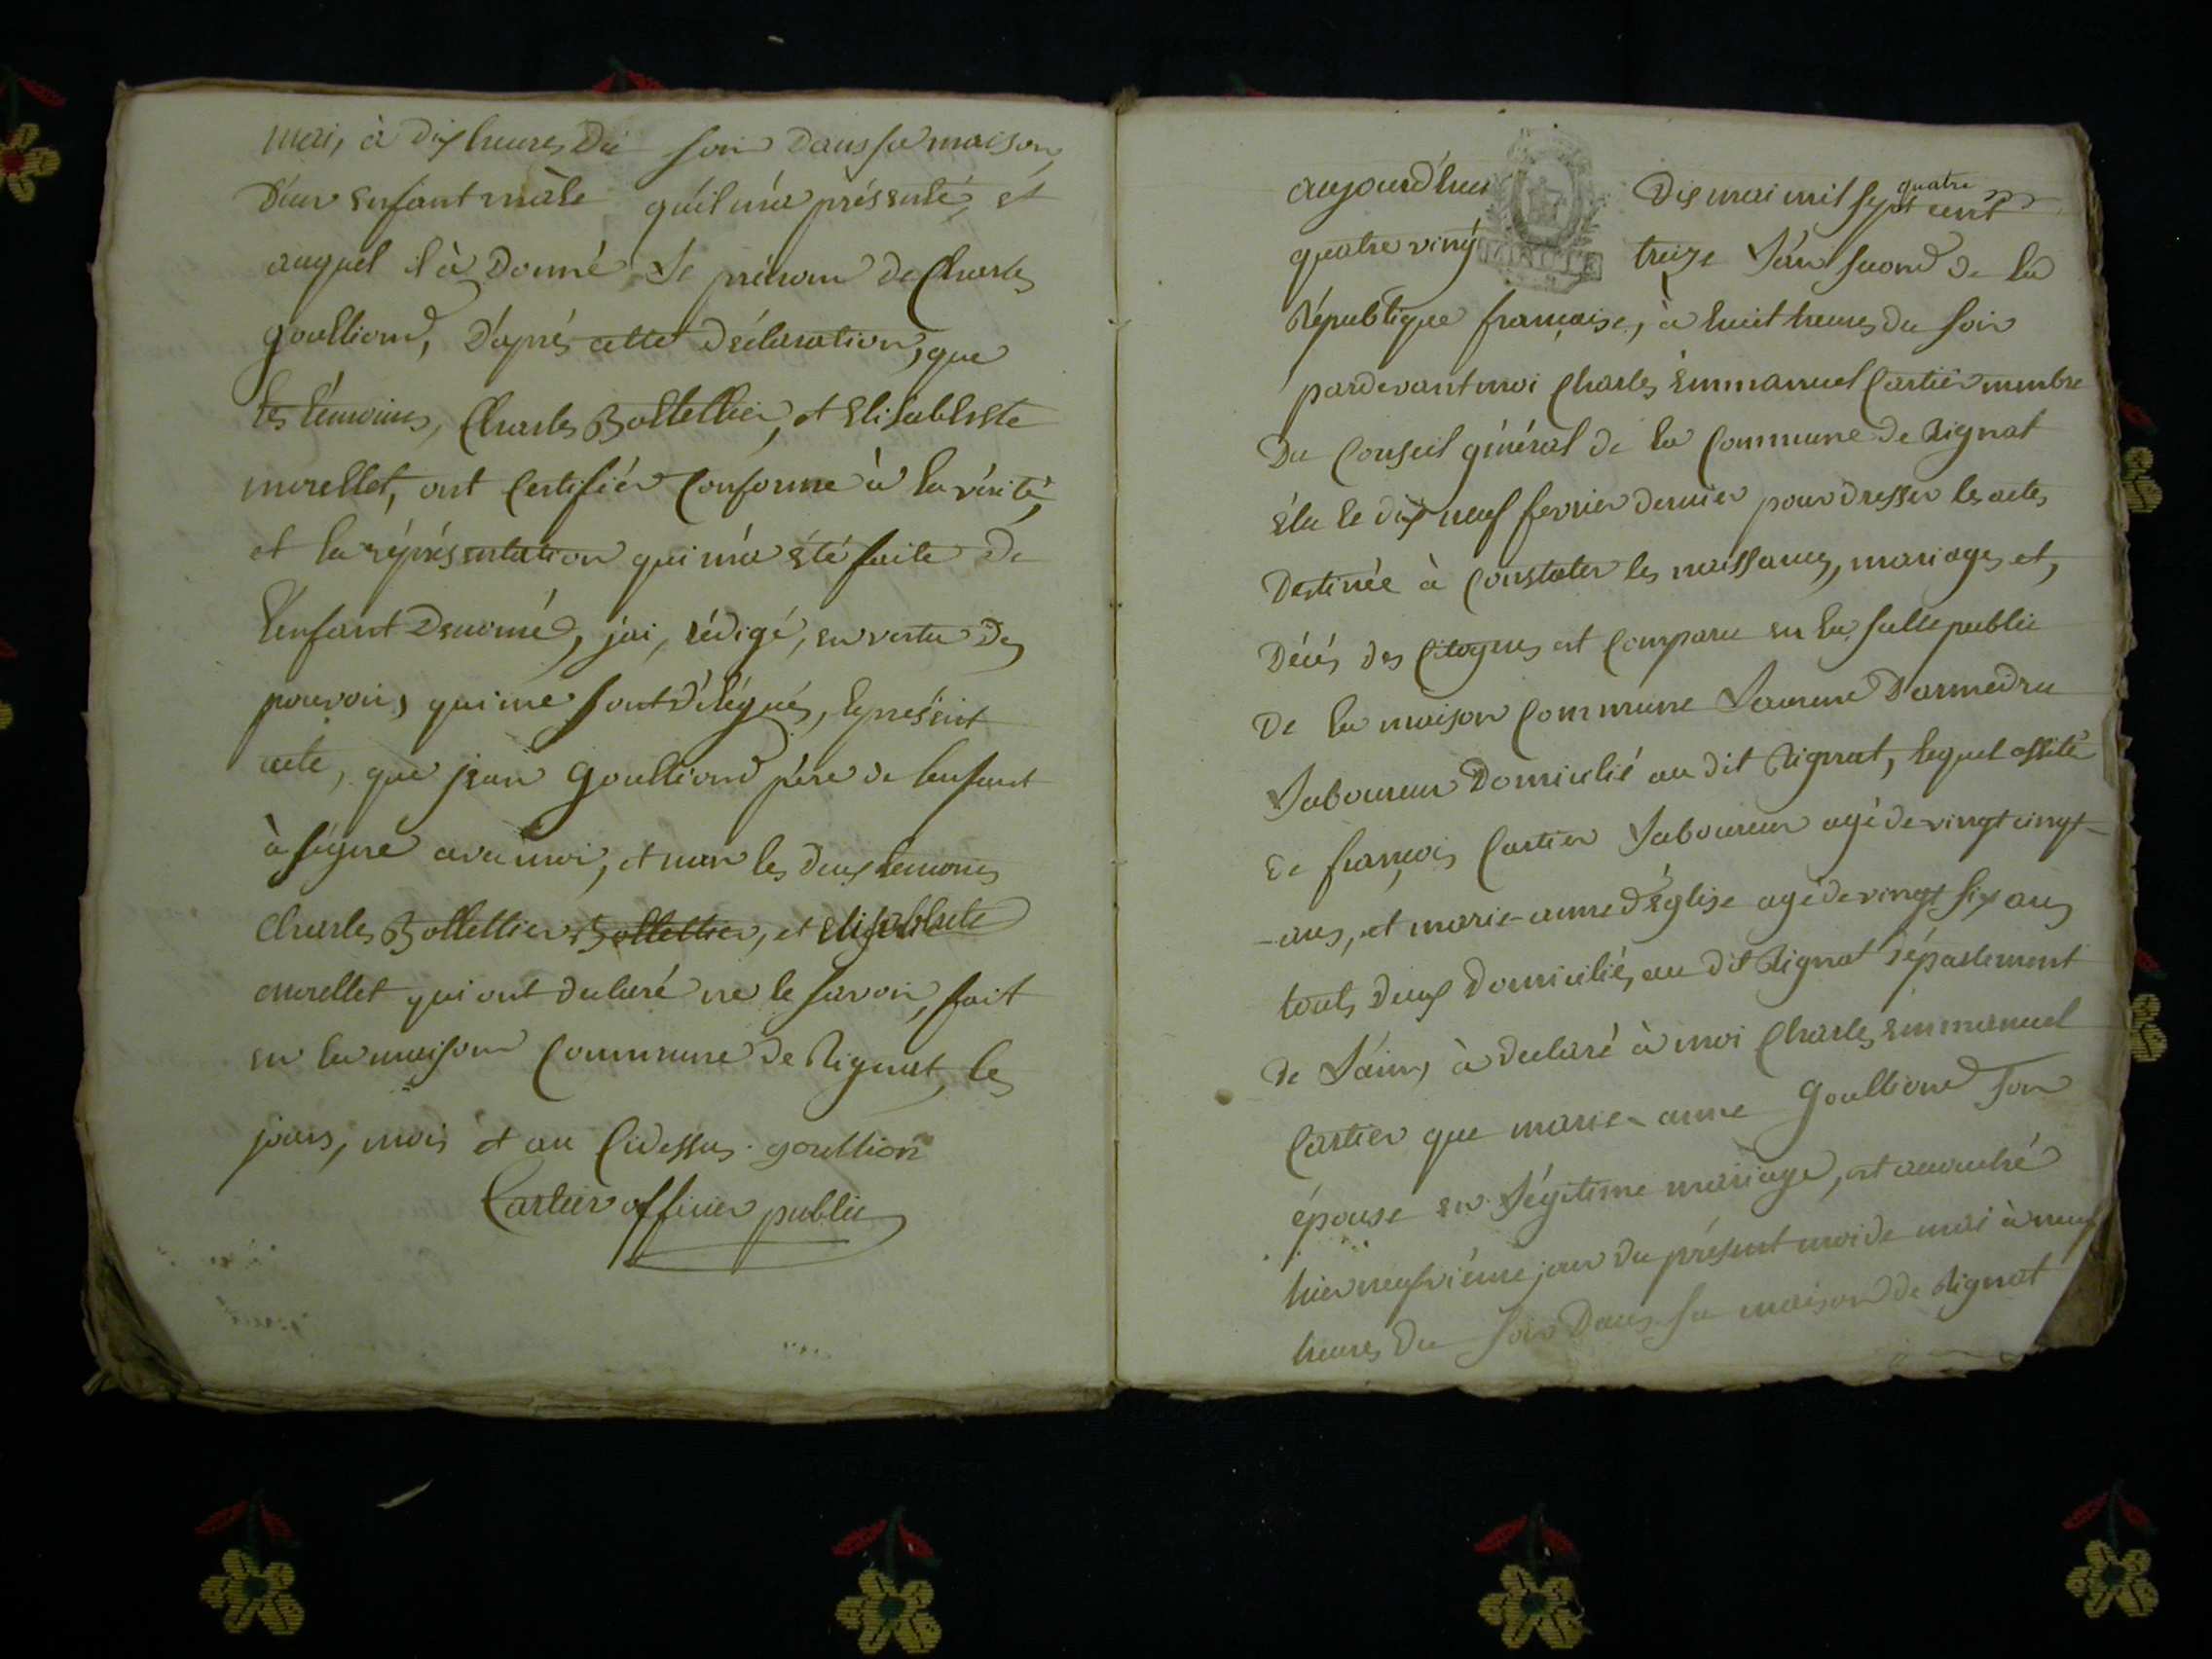 mai, à dix heures du soir dans sa maison,
d'un enfant mâle qu'il m'a présenté, et
auquel il à donné le prénom de Charles
goullion, d'après cette déclaration, que
les témoins, Charles Bollettier, et Elisableste
morellet, ont Certifiér Conforme à la vérité,
et la réprésentation qui m'a été faite de
l'enfant denomé, j'ai, rédigé, en vertu des
pouvoirs, qui me sont délégués, le présent
acte, que jean goulliond père de lenfant
à signé avec moi, et non les deux temoins
Charles Bollettier Bollettier, et Elisableste
morellet qui ont declaré ne le savoir, fait
en la maison Commune de Rignat, les
jours, mois et an Cidessus. goullion
Cartier officier public
aujourd'hui dix mai mil sept cent
quatre
quatre vingt treize l'an second de la
République française, à huit heures du soir
pardevant moi Charles Emmanuel Cartier membre
du Conseil général de la Commune de Rignat
élu le dix neuf fevrier dernier pour dresser les actes
destinée à Constater les naissances, mariages et,
décés des Citoyens est Comparu en la salle public
de la maison Commune Laurent Darmedru
laboureur domicilié au dit Rignat, lequel assité
de françois Cartier laboureur agé de vingt cinqt-
-ans, et marie-anne d'Eglise agé de vingt six ans
touts deux domiciliés au dit Rignat département
de l'ain, à declaré à moi Charles Emmanuel
Cartier que marie-anne Goulliond son
épouse en légitime mariage, est accouché
hier neufvième jour du présent moi de mai à neuf
heures du soir dans sa maison de Rignat